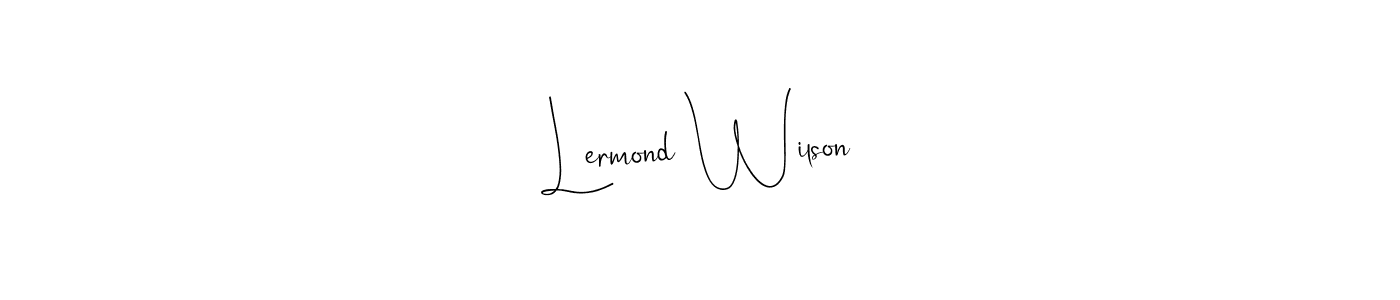 Lermond Wilson